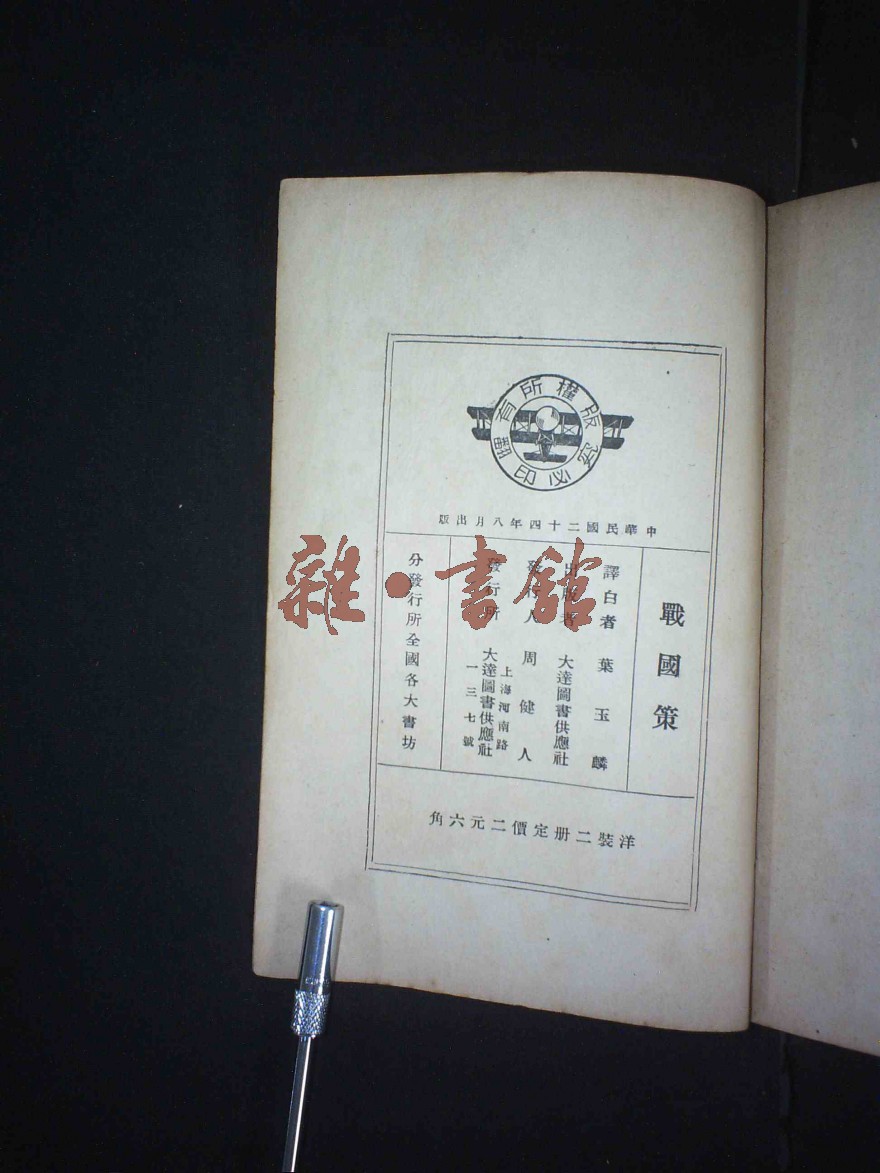 版權所有
翻印必究
中華民國二十四年八月出版
戰國策
譯白者 葉玉麟
出版者 大達圖書供應社
發行人 周健人
發行所 大達圖書供應社
上海河南路
一三七號
分發行所全國各大書坊
洋裝二册定價二元六角
雜·書館